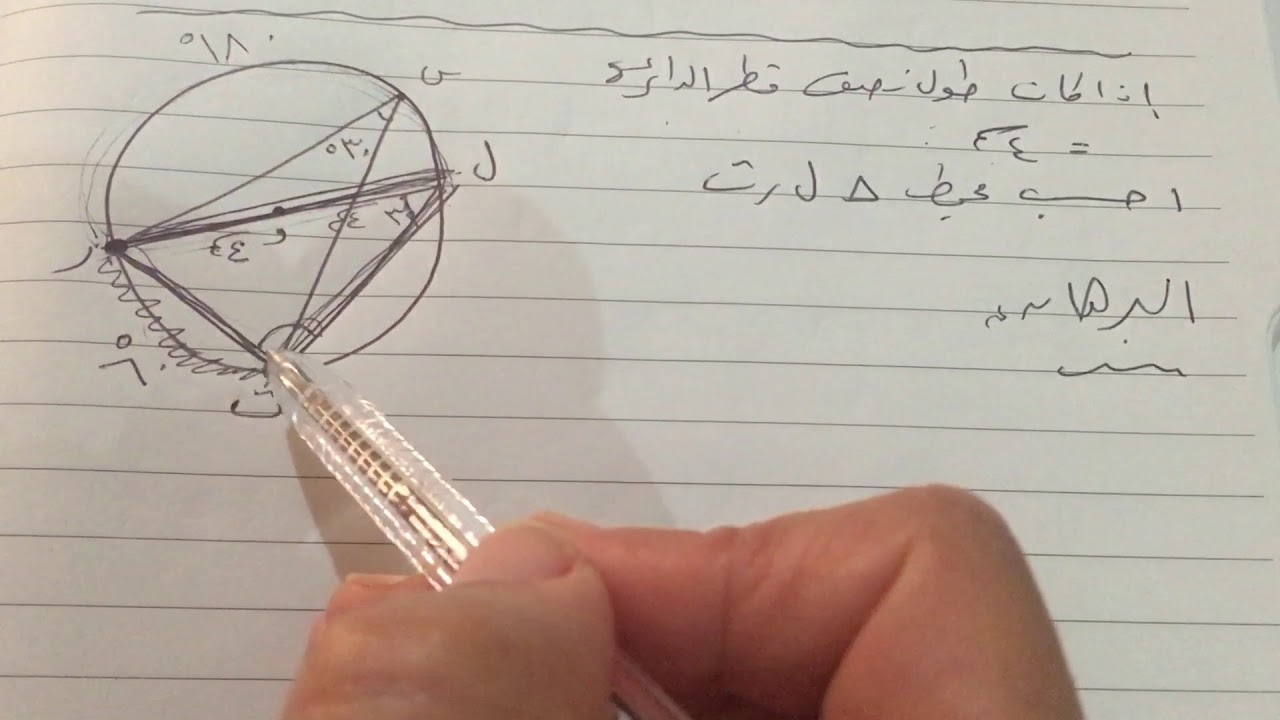 اذا كان طول نصف قطر الدائرة
= ٤سم
احسب محيط △ ل ر ت
البرهان
١٨٠°
س
٣٠°
ل
٣٠
٤سم
م
٤سم
ر
٦٠°
ت